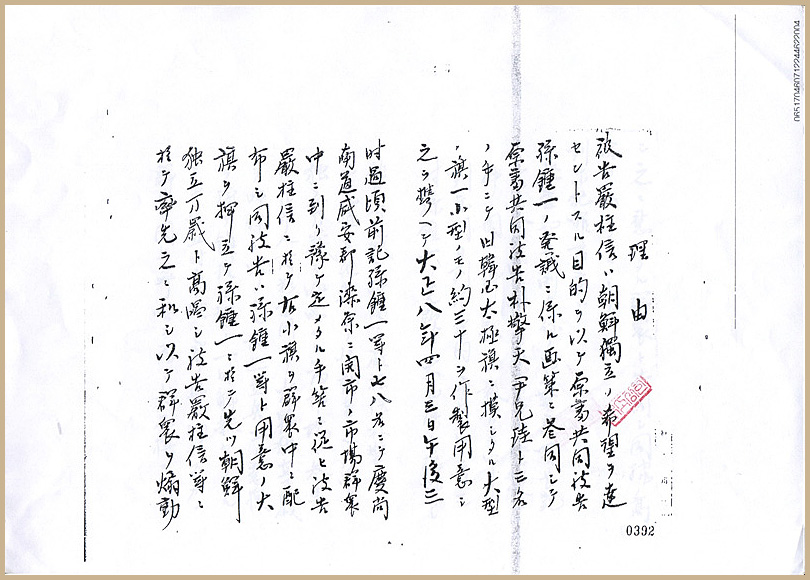 理由
被告嚴柱信ハ朝鮮獨立ノ希望ヲ達
セントスル目的ヲ以テ原審共同被告
孫鍾一ノ発議ニ係ル画策ニ参同シテ
原審共同被告朴擎天尹兄珪ト三名
ノ手ニテ旧韓国太極旗ニ摸シタル大型
ノ旗一小型ノモノ約三十ヲ作製用意シ
之ヲ携ヘテ大正八年四月三日午後三
時過頃前記孫鍾一等ト七八名ニテ慶尚
南道咸安郡漆原ニ開市ノ市場群衆
中ニ到リ豫テ定メタル手筈ニ従ヒ被告
嚴柱信ニ於テ右小旗ヲ群衆中ニ配
布シ同被告ハ孫鍾一等ト用意ノ大
旗ヲ押立テ孫鍾一ニ於テ先ツ朝鮮
独立万歳ト高唱シ被告嚴柱信等ニ
於テ率先之ニ和シ以テ群衆ヲ煽動
0392